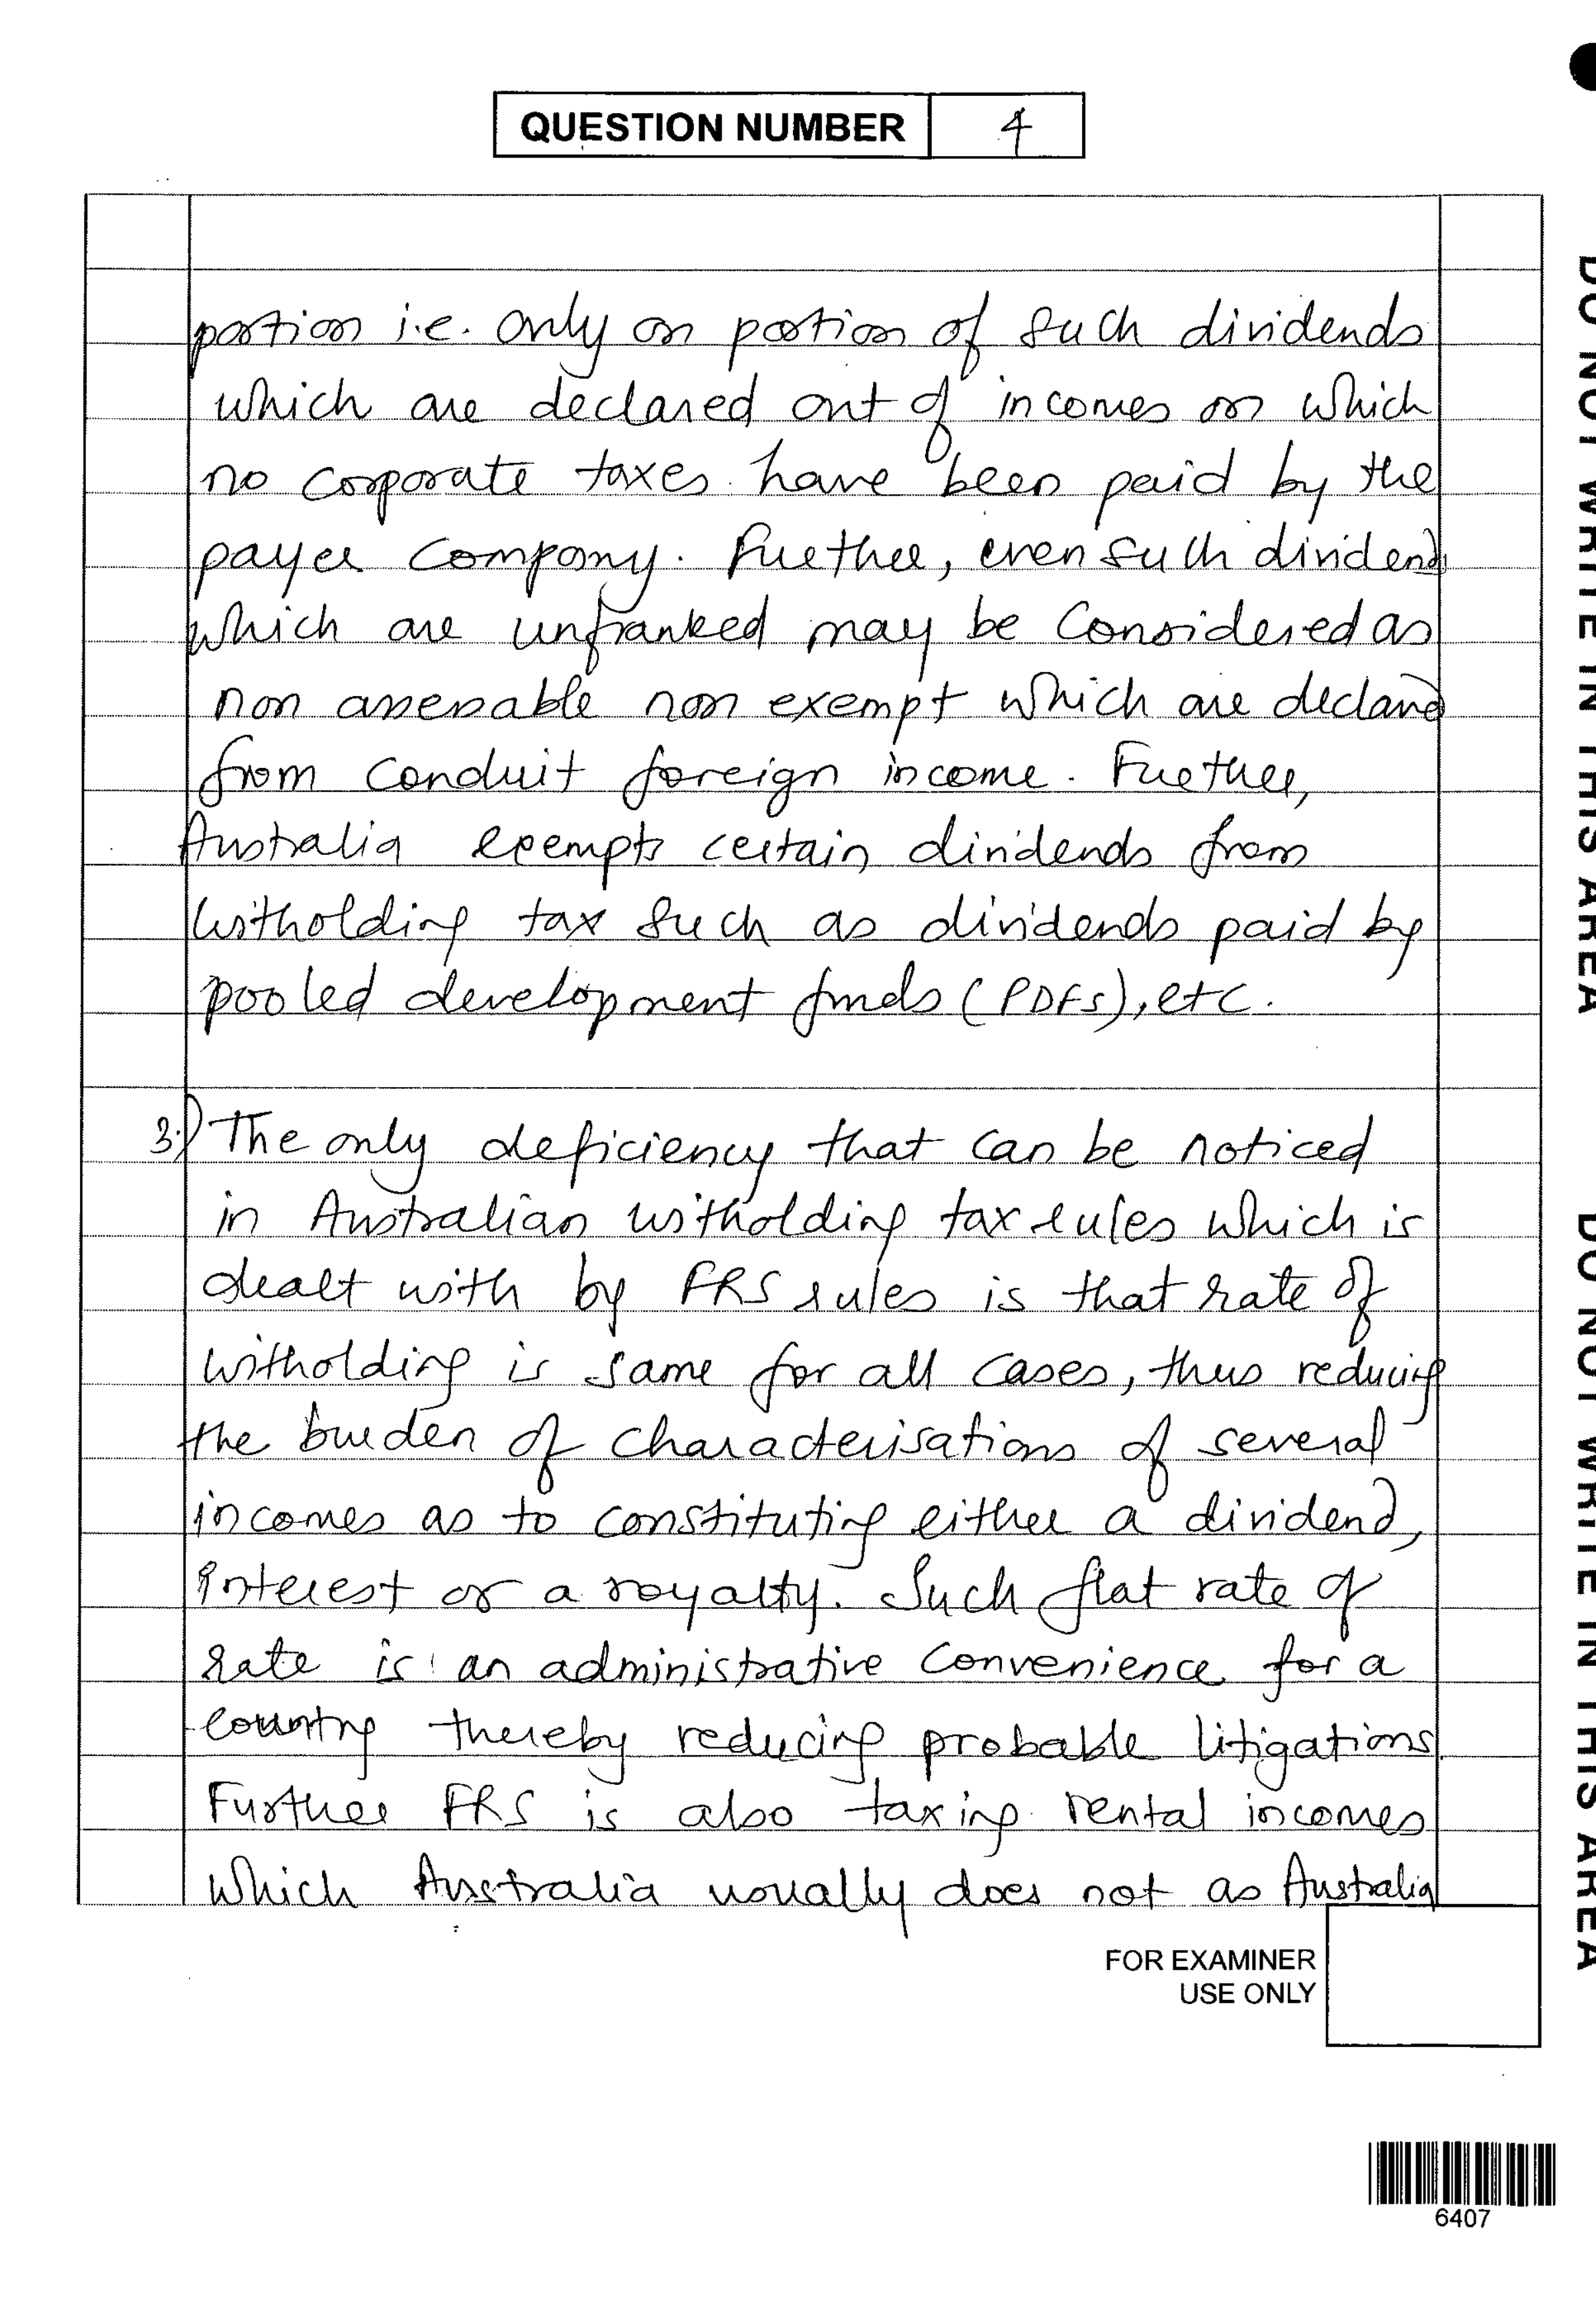 QUESTION NUMBER 4
portion i.e. only on portion of such dividends
which are declared out of incomes on which
no corporate taxes have been paid by the
payer company. Further, even such dividend
which are unfranked may be considered as
non assessable non exempt which are declared
from conduit foreign income. Further,
Australia exempts certain dividends from
witholding tax such as dividends paid by
pooled development funds (PDFs), etc.
3.) The only deficiency that can be noticed
in Australian witholding tax rules which is
dealt with by FRS rules is that rate of
witholding is same for all cases, thus reducing
the burden of characterisations of several
incomes as to constituting either a dividend,
interest or a royalty. Such flat rate of
rate is an administrative convenience for a
country thereby reducing probable litigations.
Further FRS is also taxing rental incomes
which Australia usually does not as Australia
FOR EXAMINER
USE ONLY
6407
DO NOT WRITE IN THIS AREA
DO NOT WRITE IN THIS AREA